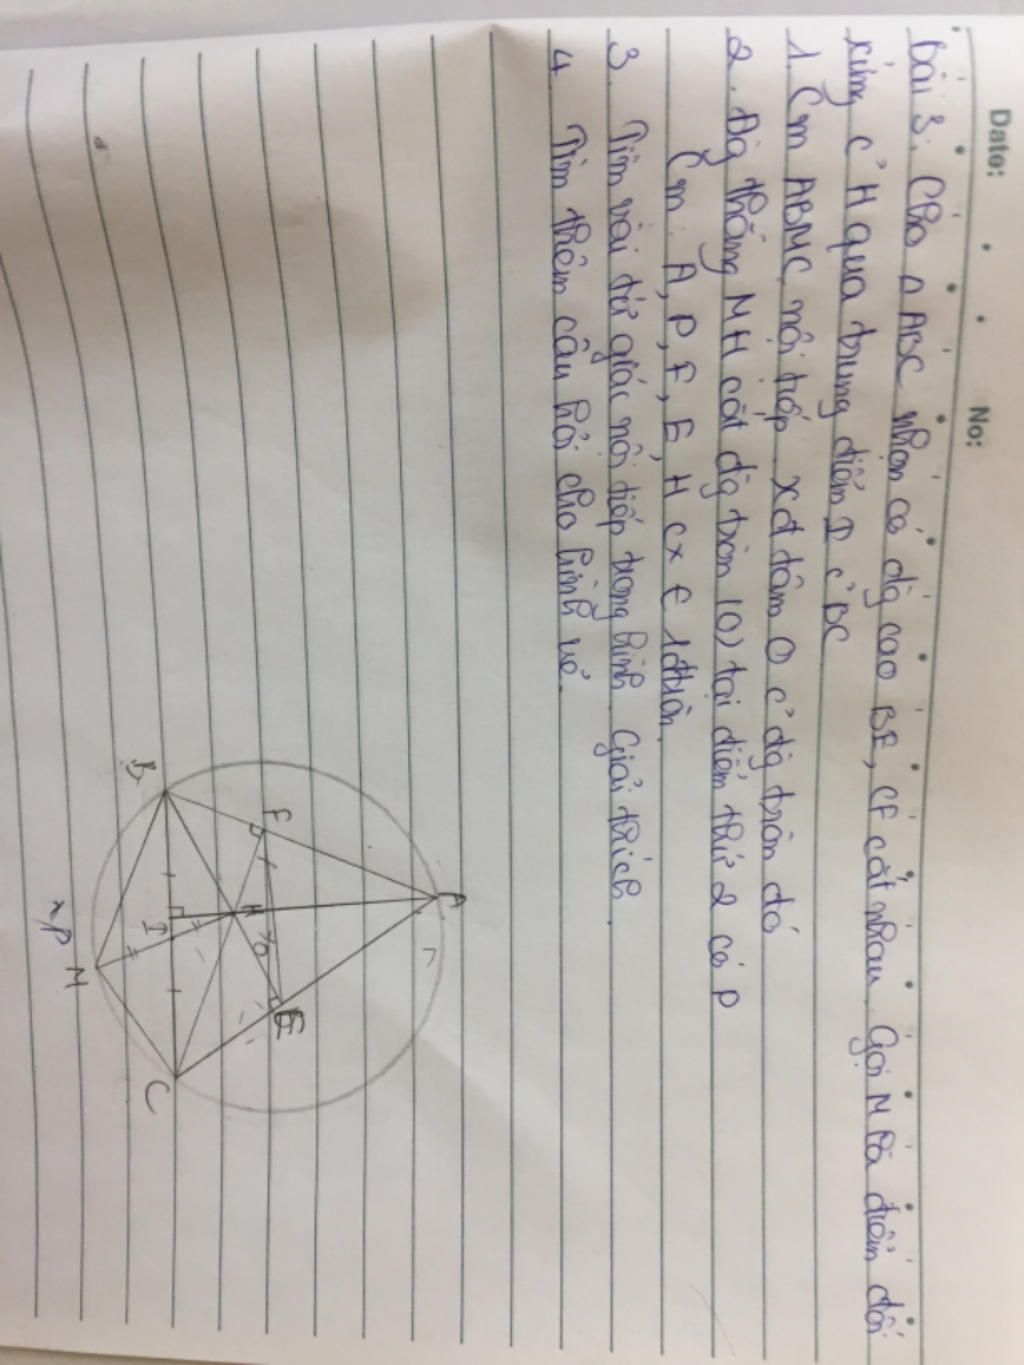 Date:
No:
Bài 3: Cho Δ ABC nhọn có đg cao BE, CF cắt nhau. Gọi M là điểm đối
xứng c' H qua trung điểm I c' BC
1. Cm ABMC nội tiếp. Xđ tâm O c' đg tròn đó
2. Đg thẳng MH cắt đg tròn (O) tại điểm thứ 2 có P
Cm: A, P, F, E, H cx ∈ 1 đtròn.
3. Tìm vài tứ giác nội tiếp trong hình. Giải thích.
4. Tìm thêm câu hỏi cho hình vẽ.
A
F
E
H
O
B
I
C
M
P